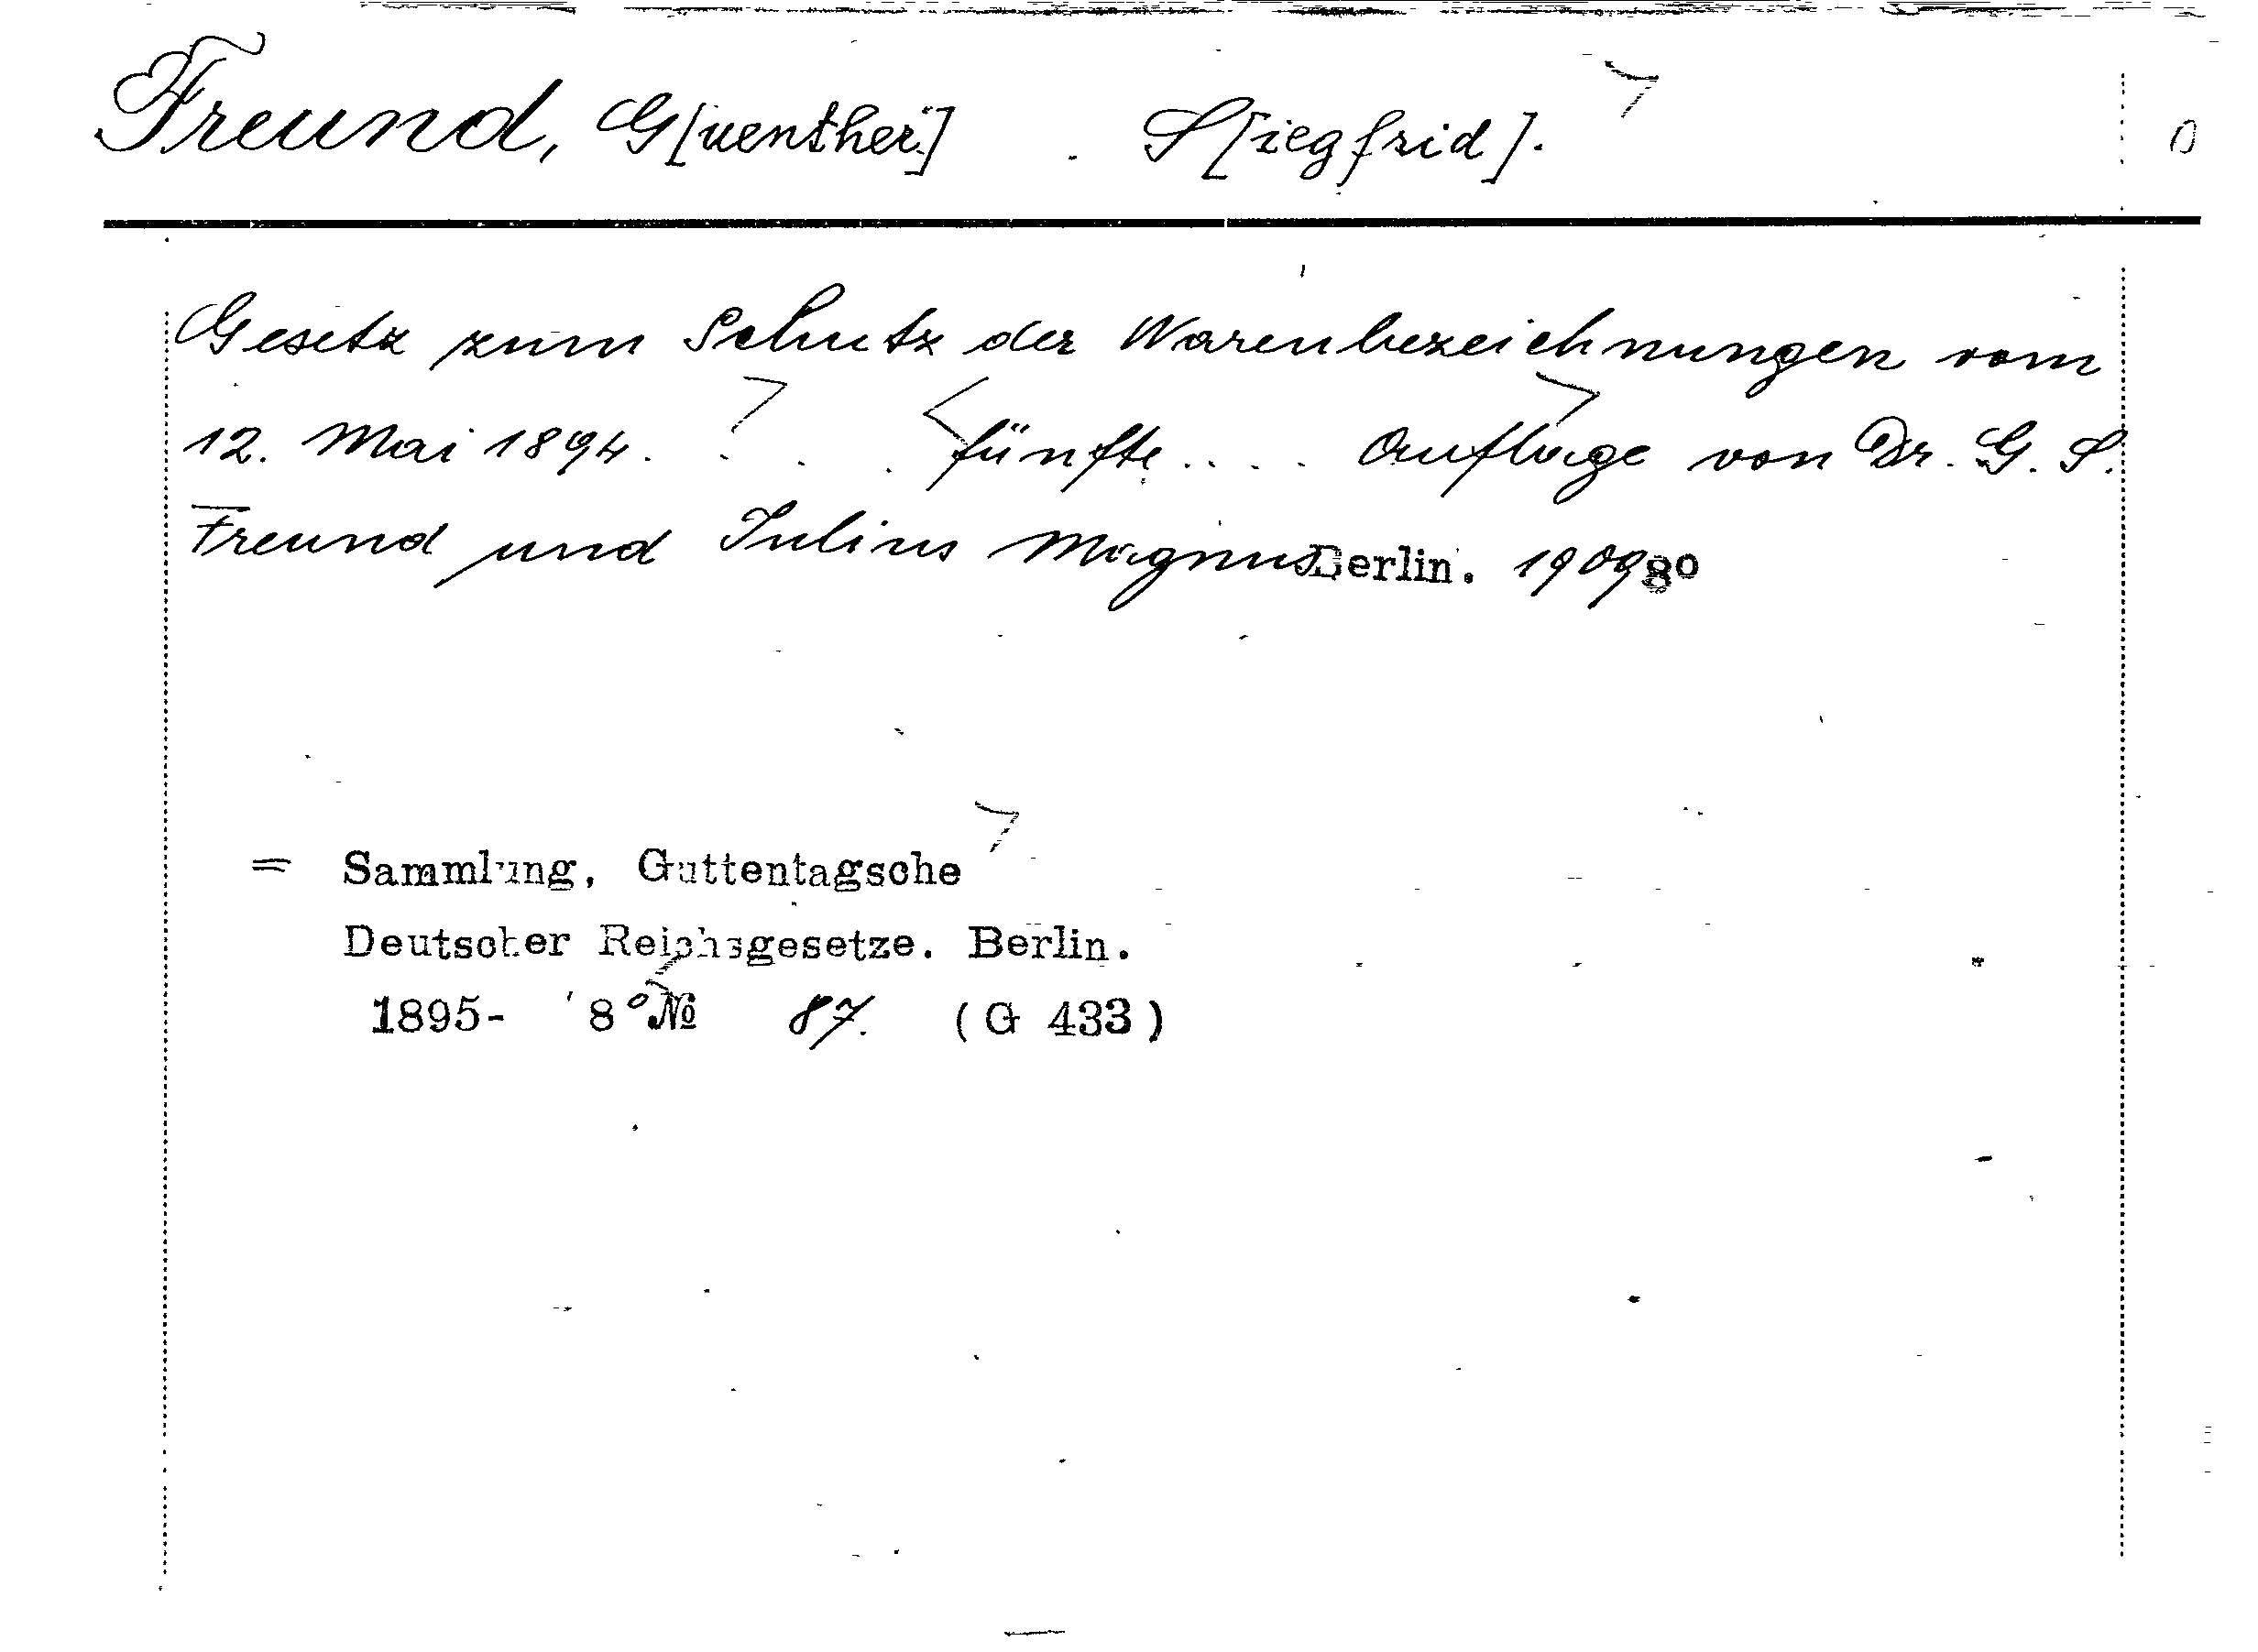 Freund, G[uenther] . S[iegfrid].
Gesetz zum Schutz der Warenbezeichnungen vom
12. Mai 1894. . . . fünfte .... Auflage von Dr. G. S.
Freund und Julius Magnus Berlin. 1909 8º
= Sammlung, Guttentagsche
Deutscher Reichsgesetze. Berlin.
1895- 8º № 87. (G 433)